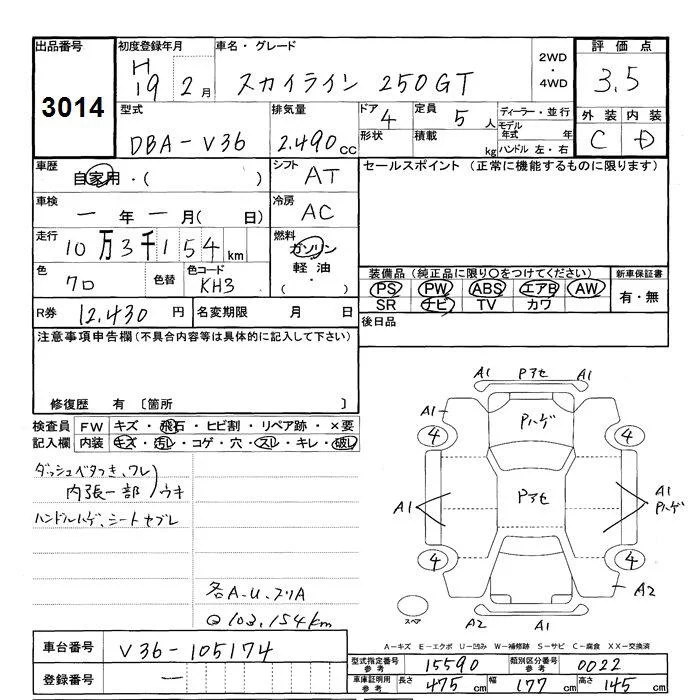 出品番号 初度登録年月 車名・グレード 2WD・4WD 評価点
3014 H19 2月 スカイライン 250GT 3.5
型式 排気量 ドア 4 定員 5人 ディーラー・並行 外装 内装
DBA-V36 2.490cc 形状 積載 kg モデル年式 年 C D
ハンドル 左・右
車歴 自家用・( ) シフト AT セールスポイント (正常に機能するものに限ります)
車検 一年一月( 日) 冷房 AC
走行 10万3千154km 燃料 ガソリン 軽油・( )
色 クロ 色替 色コード KH3
装備品 (純正品に限り○をつけてください) 新車保証書
PS PW ABS エアB AW 有・無
SR ナビ TV カワ
R券 12,430円 名変期限 月 日 後日品
注意事項申告欄(不具合内容等は具体的に記入して下さい)
修復歴 有 〔箇所 〕
検査員 FW キズ・飛石・ヒビ割・リペア跡・×要
記入欄 内装 キズ・汚レ・コゲ・穴・スレ・キレ・破レ
ダッシュベタつき、ワレ
内張一部 ウキ
ハンドルハゲ、シートセブレ
各A.U.スリA
@103,154km
A1 Pアセ A1
A1 Pハゲ
4 4
A1 Pアセ A1 Pハゲ
4 4
A2
スペア A2 A1
A-キズ E-エクボ U-凹み W-補修跡 S-サビ C-腐食 XX-交換済
車台番号 V36-105174
型式指定番号 参考 15590 類別区分番号 参考 0022
登録番号 一
車庫証明用 参考 長さ 475cm 幅 177cm 高さ 145cm